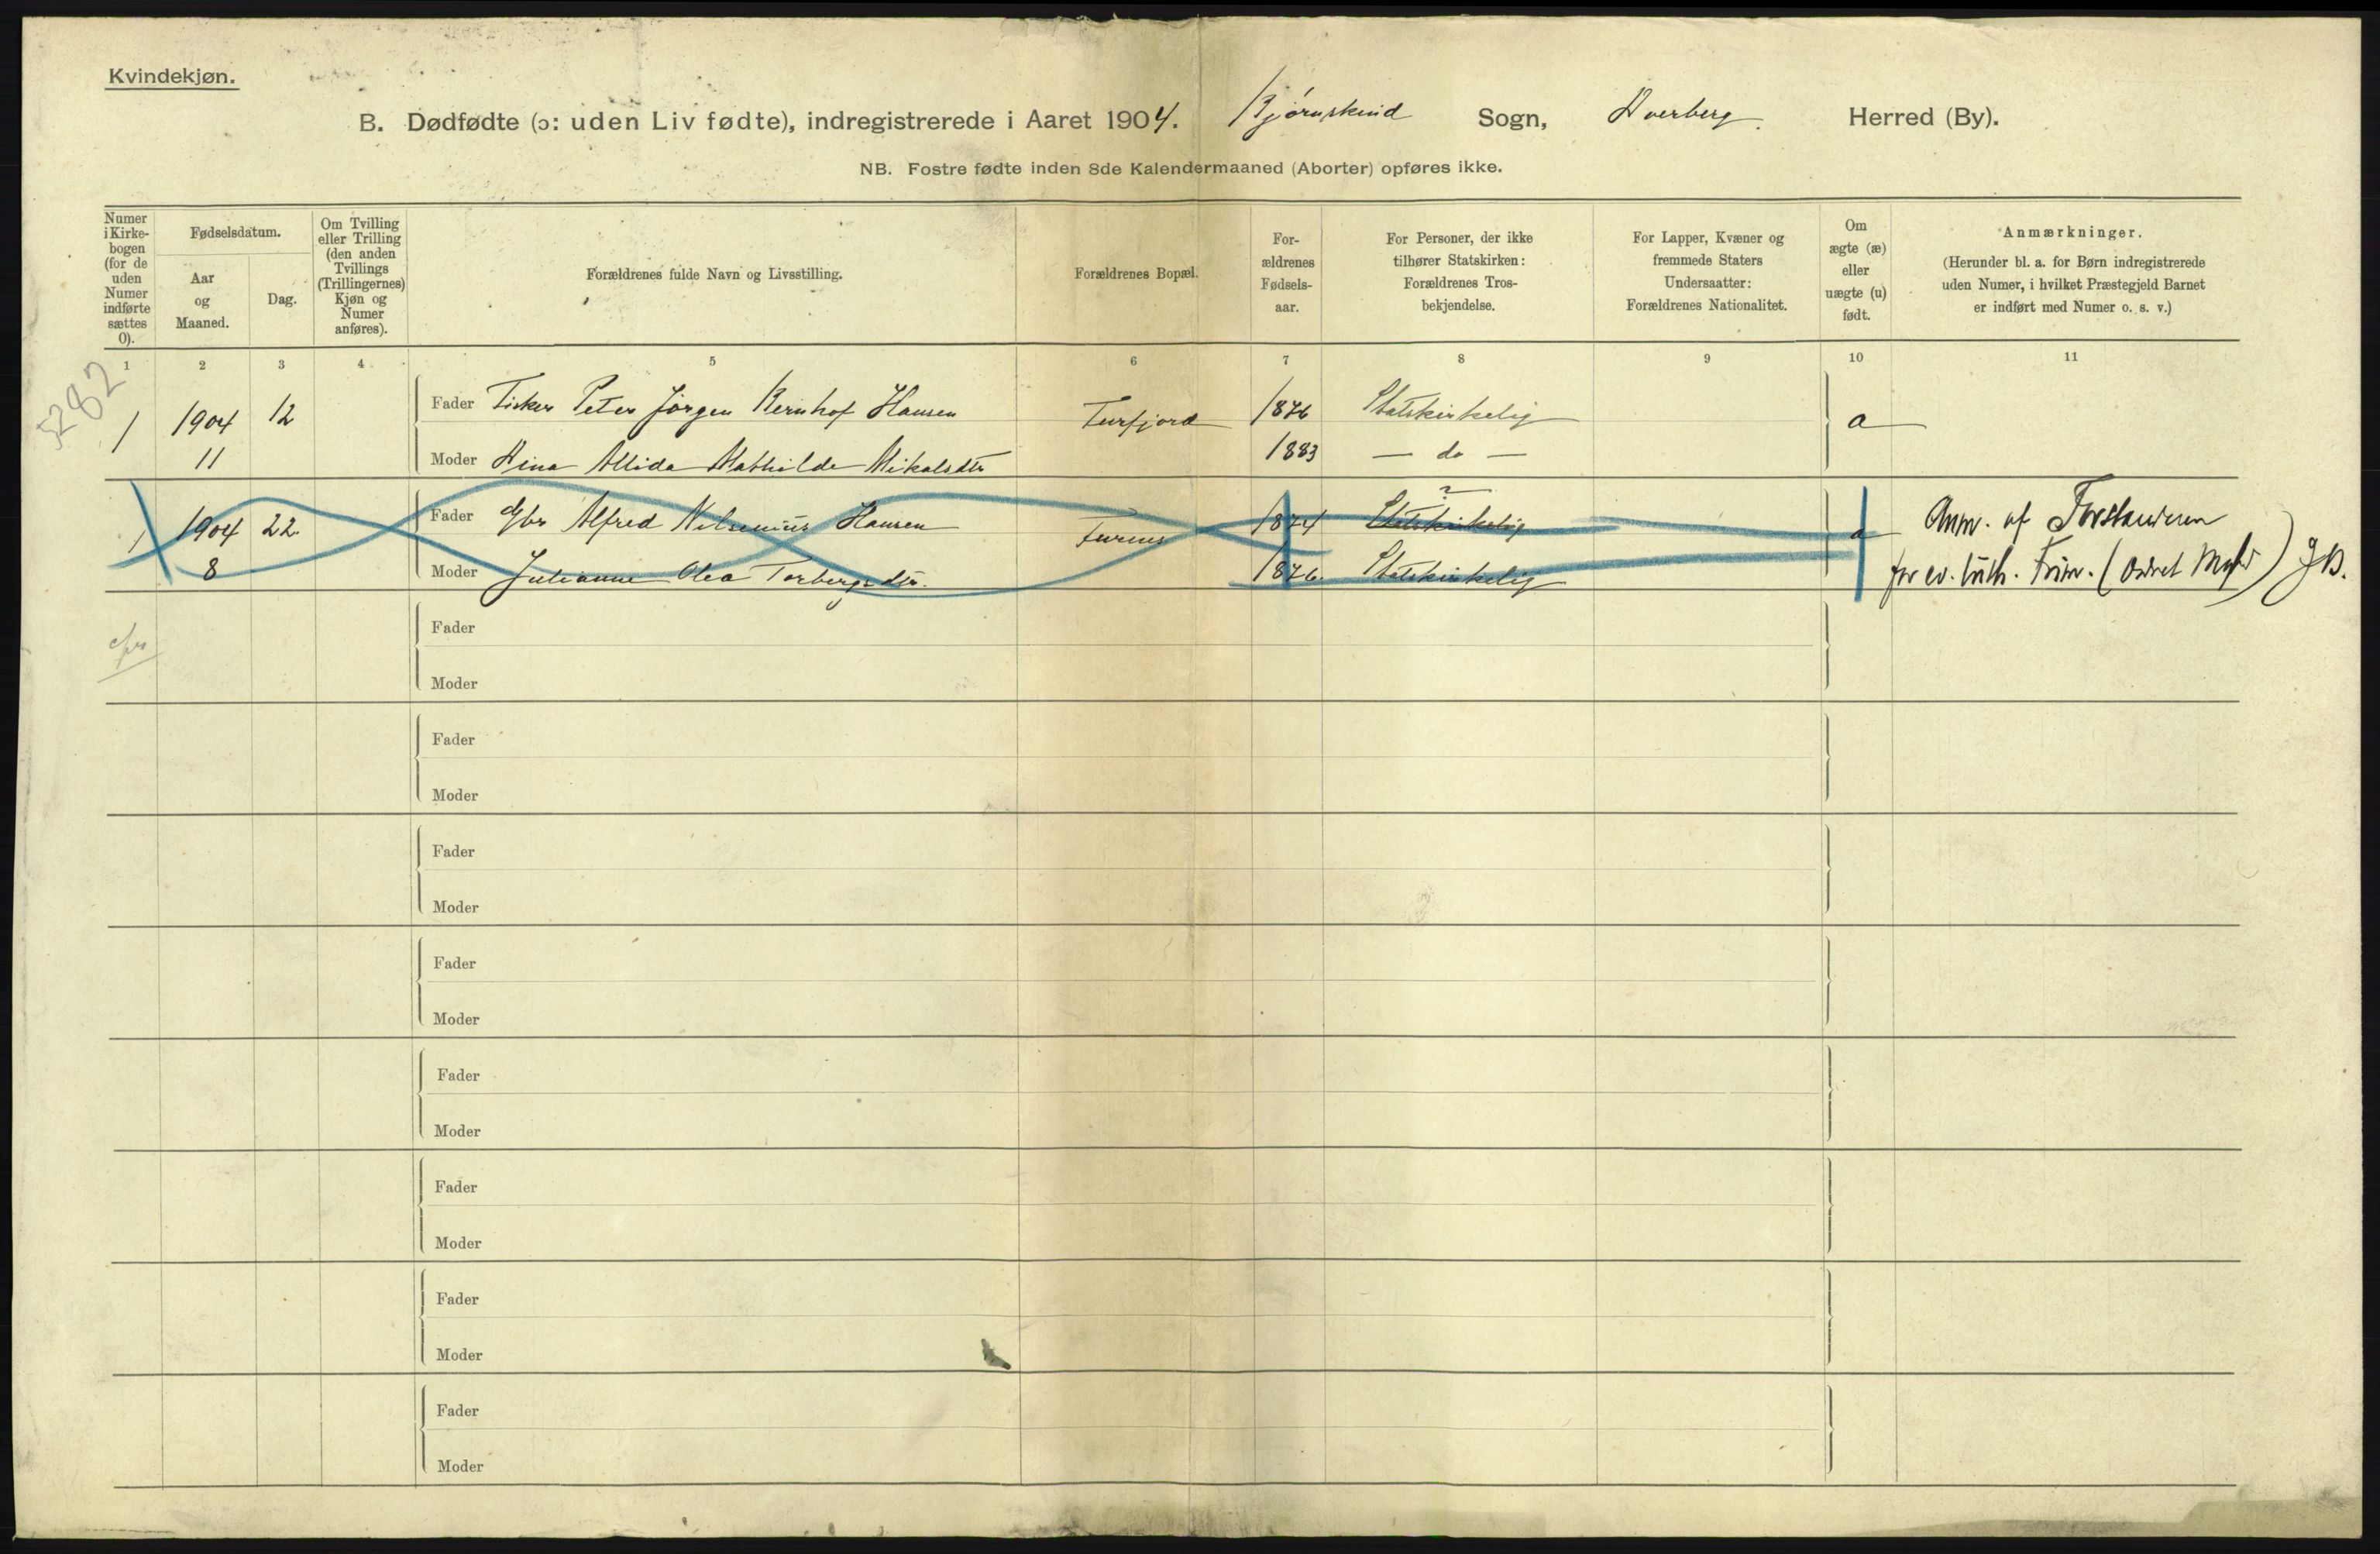 Kvindekjøn.
B. Dødfødte (ɔ: uden Liv fødte), indregistrerede i Aaret 1904. Bjørnskind Sogn, Dverberg Herred (By).
NB. Fostre fødte inden 8de Kalendermaaned (Aborter) opføres ikke.
Numer i Kirkebogen (for de uden Numer indførte sættes 0).
Fødselsdatum.
Aar og Maaned.
Dag.
Om Tvilling eller Trilling (den anden Tvillings (Trillingernes) Kjøn og Numer anføres).
Forældrenes fulde Navn og Livsstilling.
Forældrenes Bopæl.
Forældrenes Fødselsaar.
For Personer, der ikke tilhører Statskirken: Forældrenes Trosbekjendelse.
For Lapper, Kvæner og fremmede Staters Undersaatter: Forældrenes Nationalitet.
Om ægte (æ) eller uægte (u) født.
Anmærkninger.
(Herunder bl. a. for Børn indregistrerede uden Numer, i hvilket Præstegjeld Barnet er indført med Numer o. s. v.)
1 2 3 4 5 6 7 8 9 10 11
5282
1 1904 12 Fader Fisker Peter Jørgen Bernhof Hansen Turfjord 1876 Statskirkelig a
11 Moder Hina Allida Mathilde Mikalsdtr 1883 — do —
1 1904 22. Fader Gbr Alfred Nilsenius Hansen 1874 Statskirkelig a Anm. af Forstanderen
8 Moder Julianne Olea Torbergsdtr. 1876. Statskirkelig for ev. luth. Frim. (Ordret
Fader
Moder
Fader
Moder
Fader
Moder
Fader
Moder
Fader
Moder
Fader
Moder
Fader
Moder
Fader
Moder